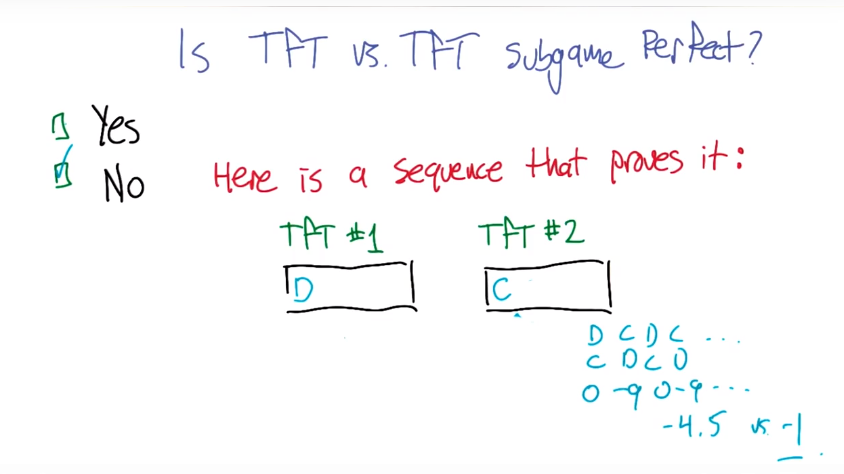 Is TFT vs. TFT subgame Perfect?
Yes
No
Here is a sequence that proves it:
TFT #1 TFT #2
D C
D C D C ...
C D C D
0 -9 0 -9 ...
-4.5 vs -1